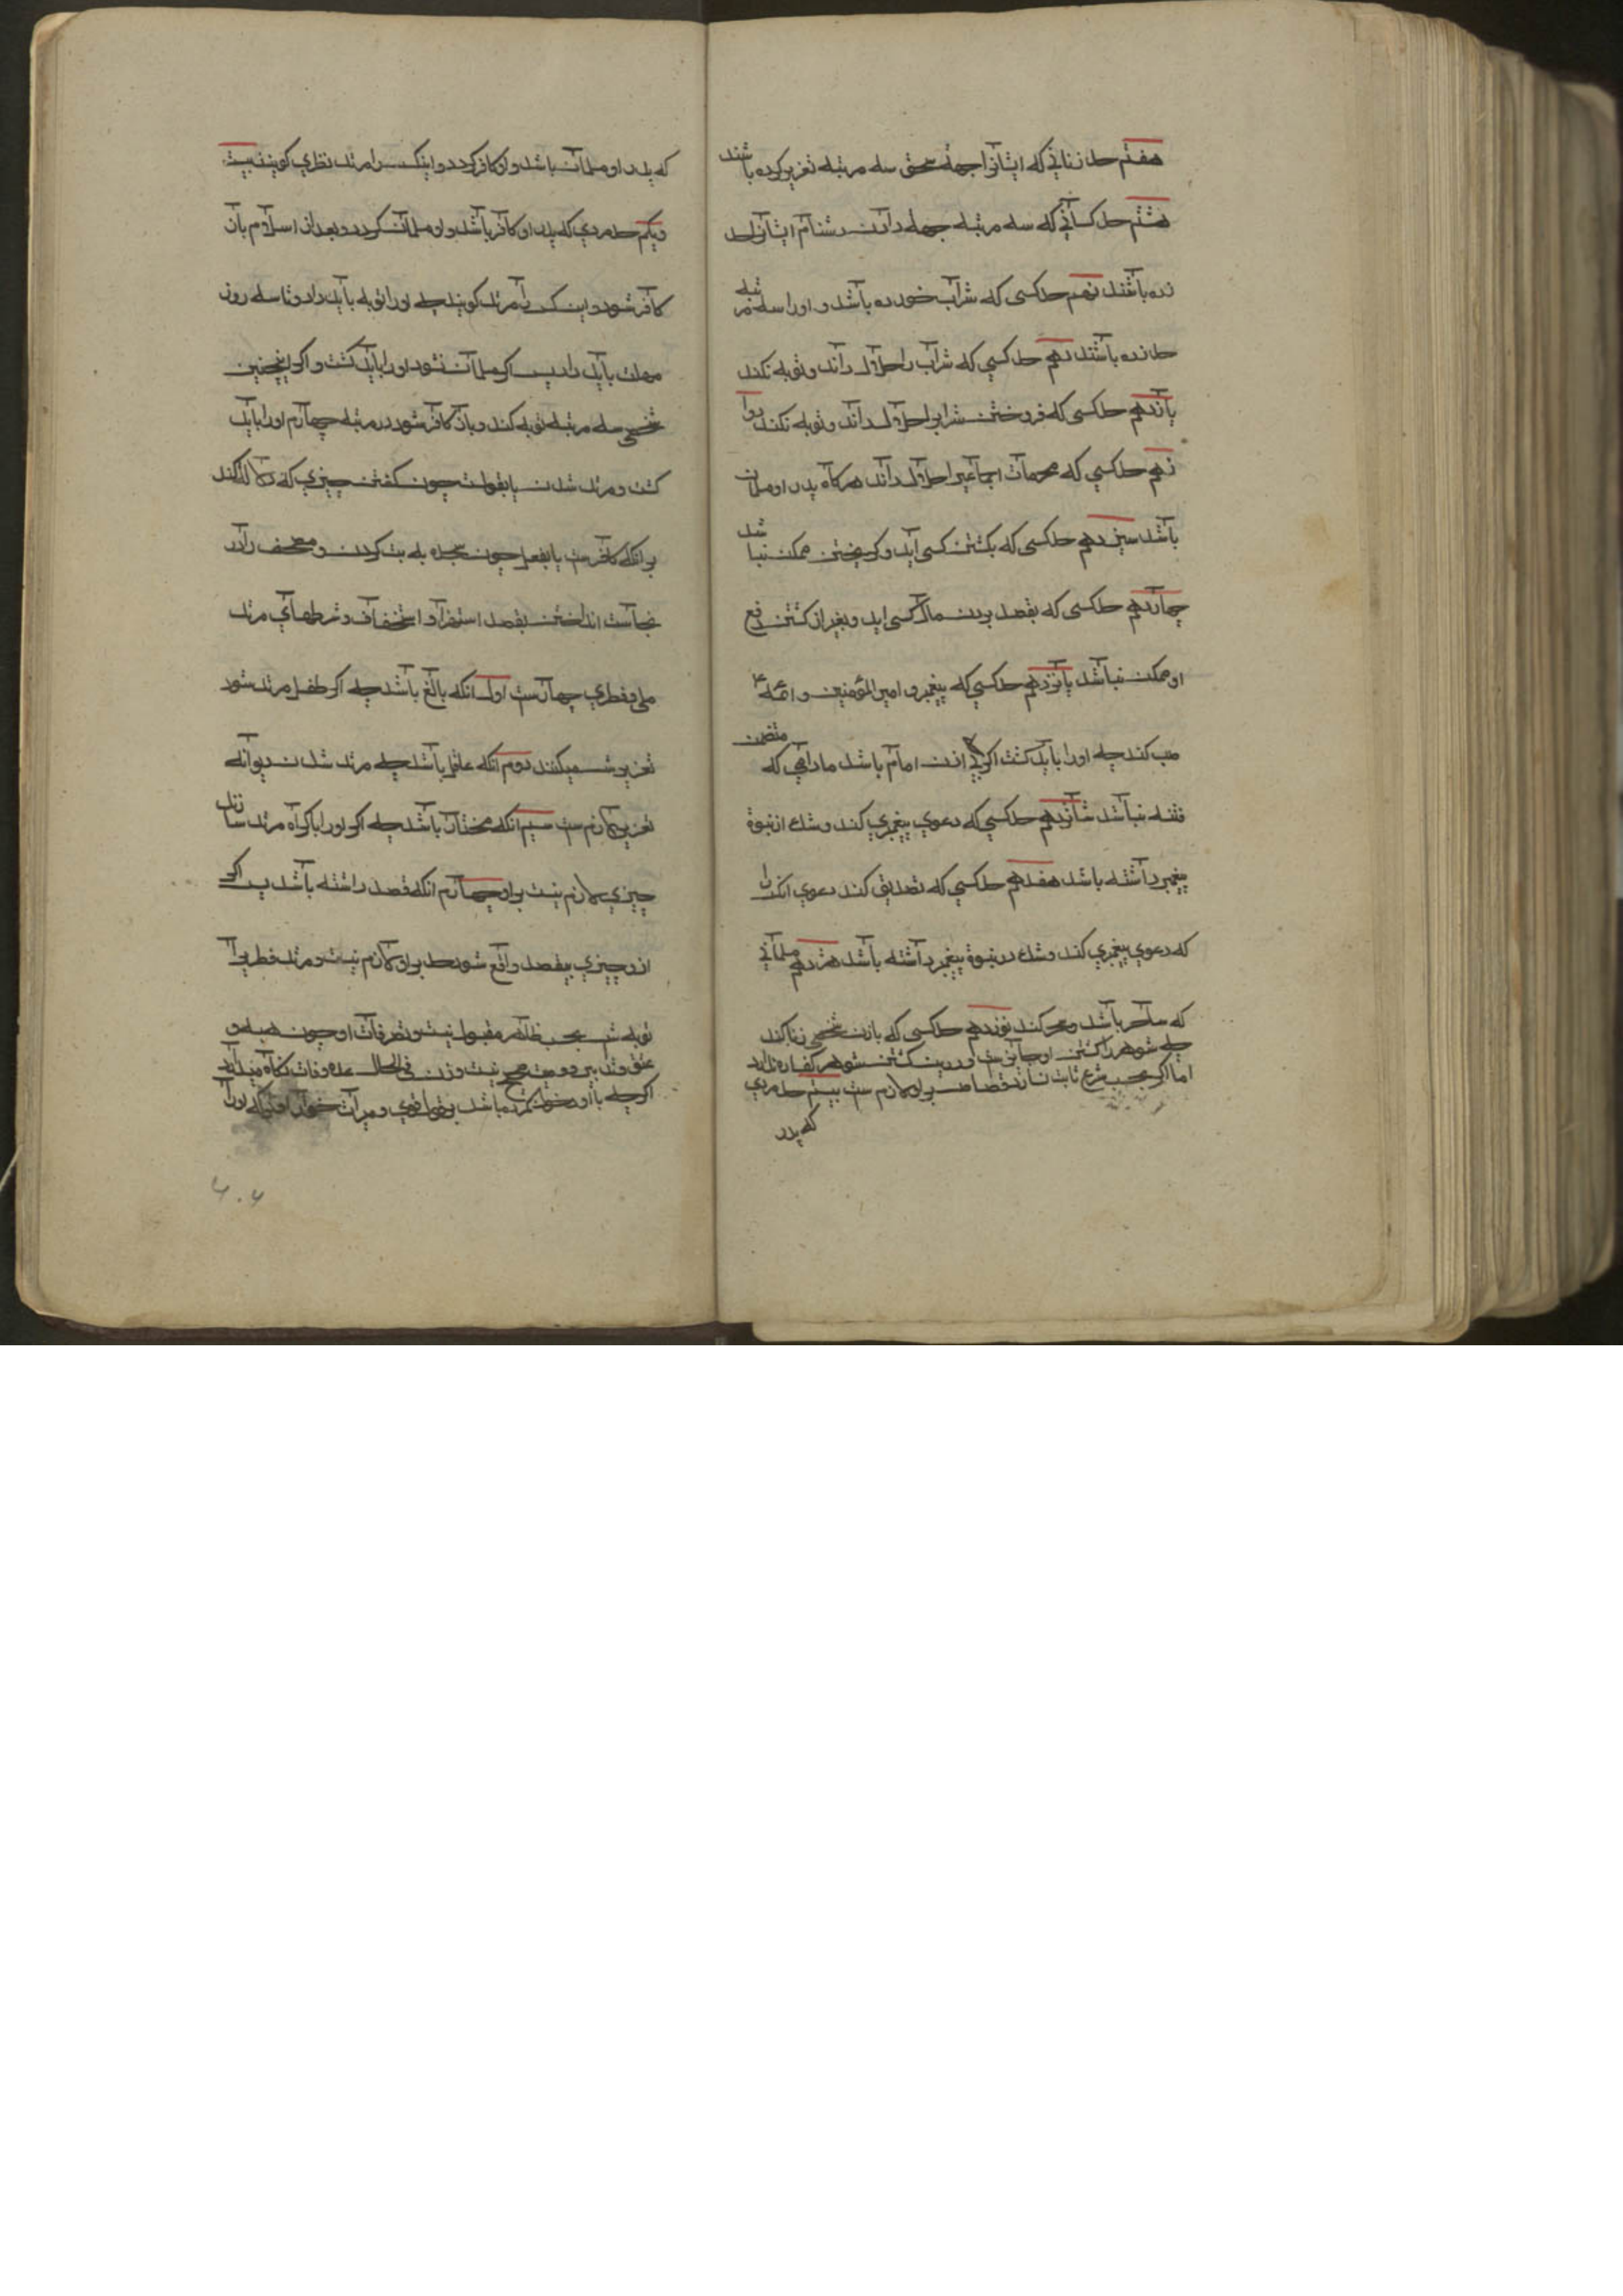 هفتم حد زنانی که ایشانرا جهة سحق سه مرتبه تعزیر کرده باشند
هشتم حد کسانی که سه مرتبه جهة دادن دشنام ایشانرا حد
زده باشند نهم حد کسی که شراب خورده باشد و او را سه مرتبه
حد زده باشند دهم حد کسی که شراب را حلال داند و توبه نکند
یازدهم حد کسی که فروختن شراب را حلال داند و توبه نکند دوا
زدهم حد کسی که محرمات اجماعی را حلال داند هرگاه پدر او مسلمان
باشد سیزدهم حد کسی که بکشتن کسی آید و گریختن ممکن نباشد
چهاردهم حد کسی که بقصد بردن مال کسی اید و بغیر از کشتن دفع
او ممکن نباشد پانزدهم حد کسی که پیغمبر و امیر المؤمنین و ائمه ع
سب کند چه او را باید کشت اگر چه اذن امام باشد مادامی که متضمن
فتنه نباشد شانزدهم حد کسی که دعوی پیغمبری کند و شک از نبوة
پیغمبر داشته باشد هفدهم حد کسی که تصدیق کند دعوی انکس را
که دعوی پیغمبری کند و شک در نبوة پیغمبر داشته باشد هژدهم مسلمانی
که ساحر باشد و سحر کند نوزدهم حد کسی که با زن شخصی زنا کند
چه شوهر را کشتن او جایز ست و درین کشتن شوهر کفاره ندارد
اما اگر بحسب شرع ثابت نسازد قصاص بر او لازم ست بیستم حد مردی
که پدر
که پدر او مسلمان باشد و او کافر گردد و اینکس را مرتد فطری گویند بیست
و یکم حد مردی که پدر او کافر باشد و او مسلمان گردد و بعد از اسلام باز
کافر شود و این کس را مرتد گویند چه او را توبه باید داد و تا سه روز
مهلت باید داد پس اگر مسلمان نشود او را باید کشت و اگر اینچنین
شخصی سه مرتبه توبه کند و باز کافر شود در مرتبه چهارم او را باید
کشت و مرتد شدن یا بقولست چون گفتن چیزی که دلالت کند
بر آنکه کافرست یا بفعل چون سجده به بت کردن و مصحف را در
نجاست انداختن بقصد استهزا و استخفاف و شرطهای مرتد
ملی و فطری چهارست اول انکه بالغ باشد چه اگر طفل مرتد شود
تعزیرش میکنند دوم انکه عاقل باشد چه مرتد شدن دیوانه
تعزیر لازم ست سیم انکه مختار باشد چه اگر او را باکراه مرتد سازند
چیزی لازم نیست بر او چهارم انکه قصد داشته باشد پس اگر
از و چیزی بیقصد واقع شود حد بر او لازم نیست و مرتد فطری را
توبه بحسب ظاهر مقبول نیست و تصرفات او چون هبه و
عتق و تدبیر و وصیت صحیح نیست و زن فی الحال عده وفات نگاه میدارد
اگر چه با او دخول نکرده باشد بر قول قوی و میراث خوار او
۴۰۴